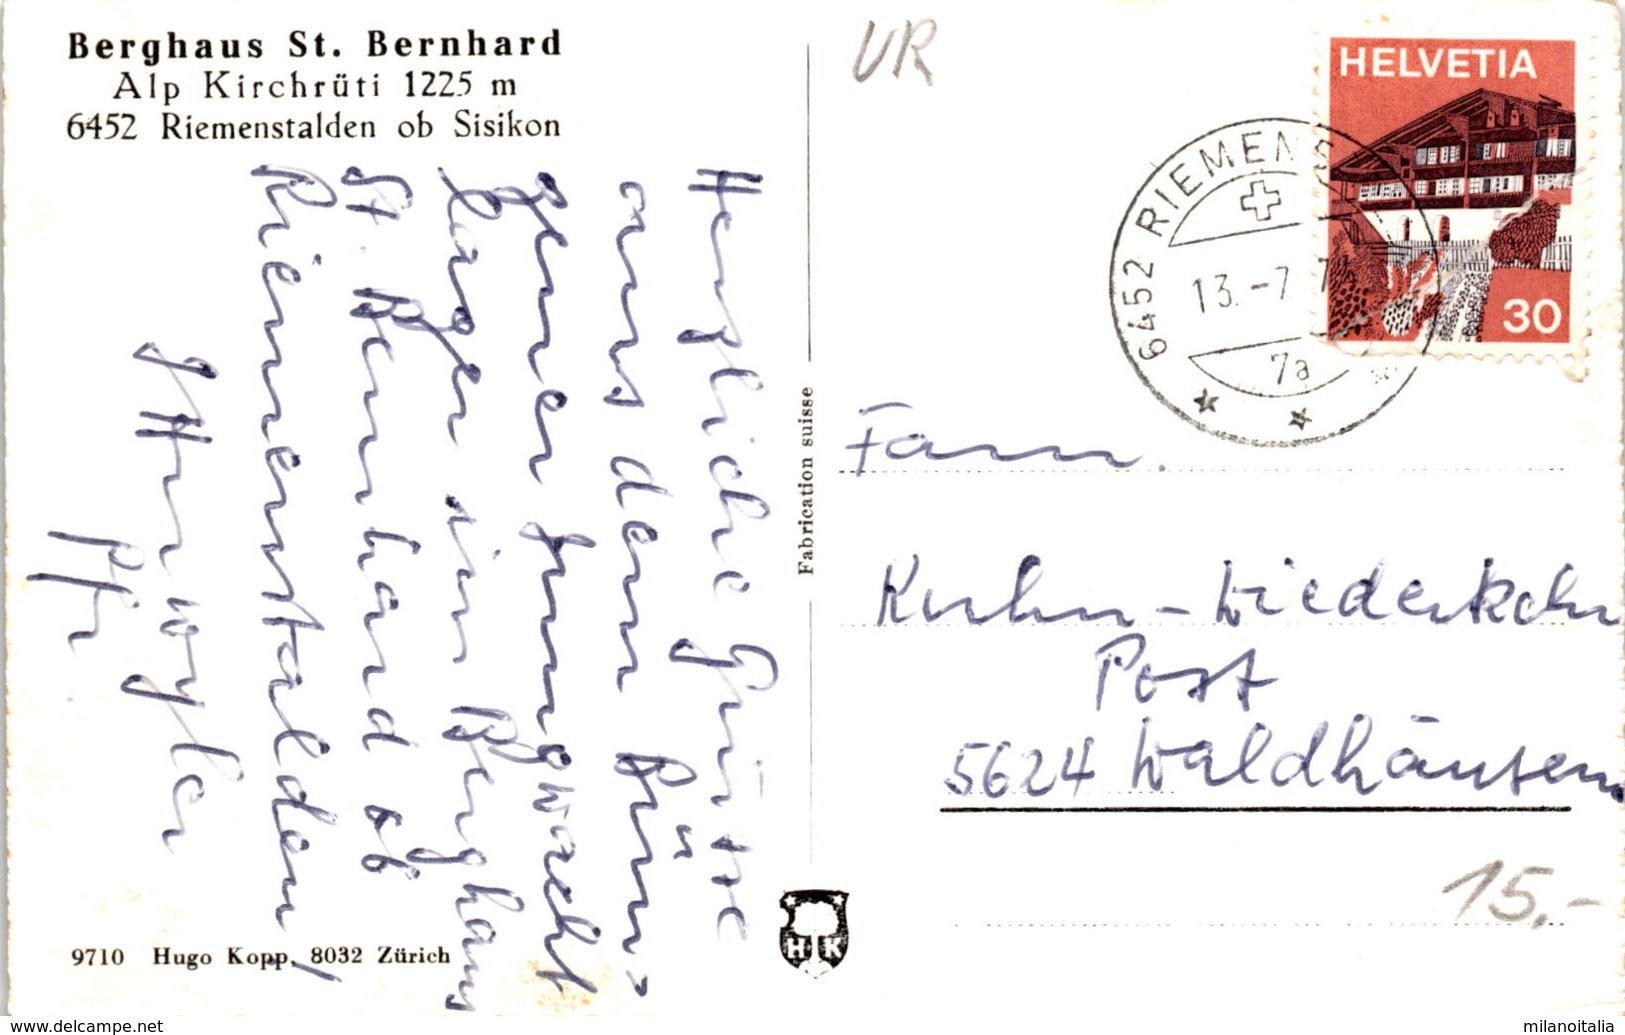 Berghaus St. Bernhard
Alp Kirchrüti 1225 m
6452 Riemenstalden ob Sisikon
Herzliche Grüsse
aus dem Bünz-
gener Jungwacht
lager im Berghaus
St. Bernhard ob
Riemenstalden!
Ihr
Pfr
9710 Hugo Kopp, 8032 Zürich
Fabrication suisse
H K
UR
HELVETIA
30
6452 RIEMENS
13.-7.7
7a
Fam.
Kuhn-Wiederkehr
Post
5624 Waldhäusern
15,-
www.delcampe.net
milanoitalia